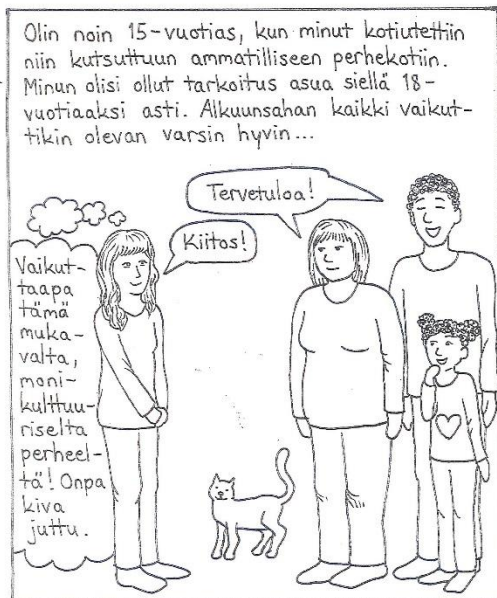 Olin noin 15-vuotias, kun minut kotiutettiin
niin kutsuttuun ammatilliseen perhekotiin.
Minun olisi ollut tarkoitus asua siellä 18-
vuotiaaksi asti. Alkuunsahan kaikki vaikut-
tikin olevan varsin hyvin...
Tervetuloa!
Kiitos!
Vaikut-
taapa
tämä
muka-
valta,
moni-
kulttuu-
riselta
perheel-
tä! Onpa
kiva
juttu.